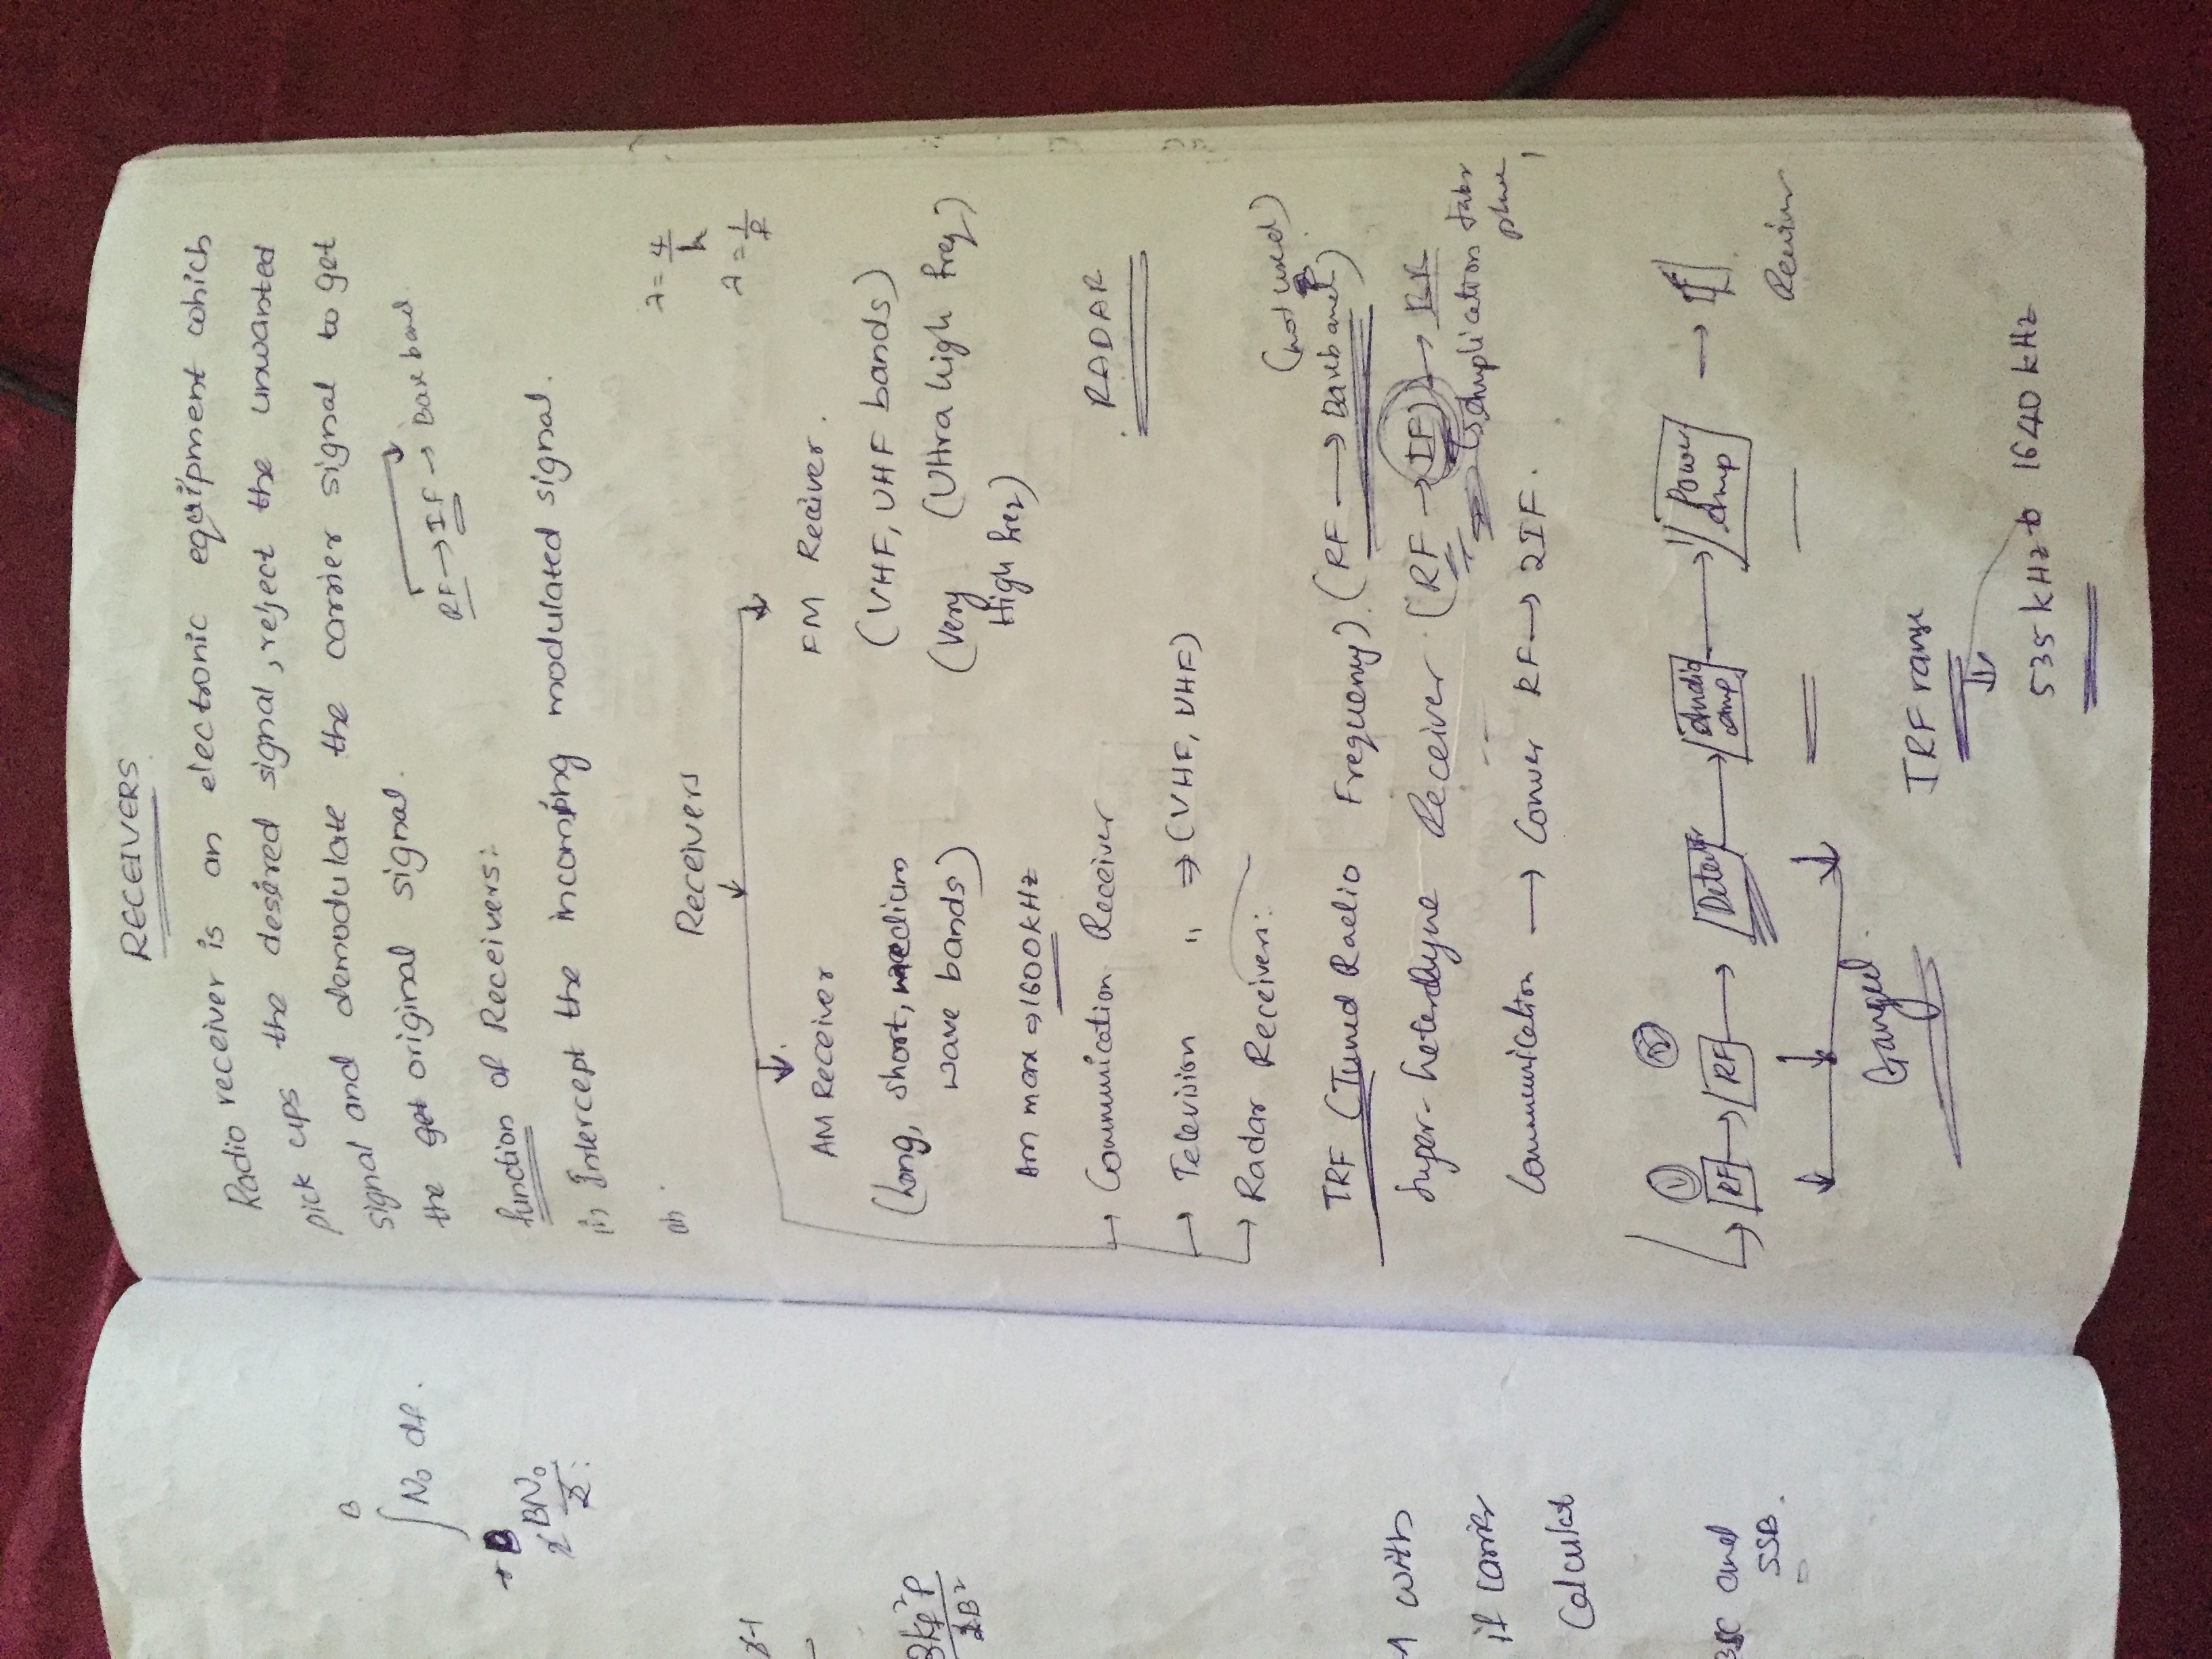 B
∫ N₀ df.
BN₀
2
3kf²P
2B²
1 with
if carrier
Calculat
and
SSB.
RECEIVERS
Radio receiver is an electronic equipment which
pick ups the desired signal, reject the unwanted
signal and demodulate the carrier signal to get
the get original signal.
RF → IF → Base band
function of Receivers:
i) Intercept the incoming modulated signal.
Receivers
λ = 4
h
λ = 1
AM Receiver
FM Reciver.
(Long, short, medium
wave bands)
(VHF, UHF bands)
(Very High freq)
(Ultra high freq)
Am max ⇒ 1600kHz
→ Communication Receiver
RADAR
→ Television " ⇒ (VHF, UHF)
→ Radar Receivers:
(not used)
TRF (Tuned Radio Frequency) (RF → Baseband)
Super-heterdyne Receiver (RF → IF) →
Amplication takes
place
Communication → Conver RF → 2IF.
1
2
RF → RF → Detector → Audio Amp → Power Amp →
Ganged
TRF range
535 kHz to 1640 kHz